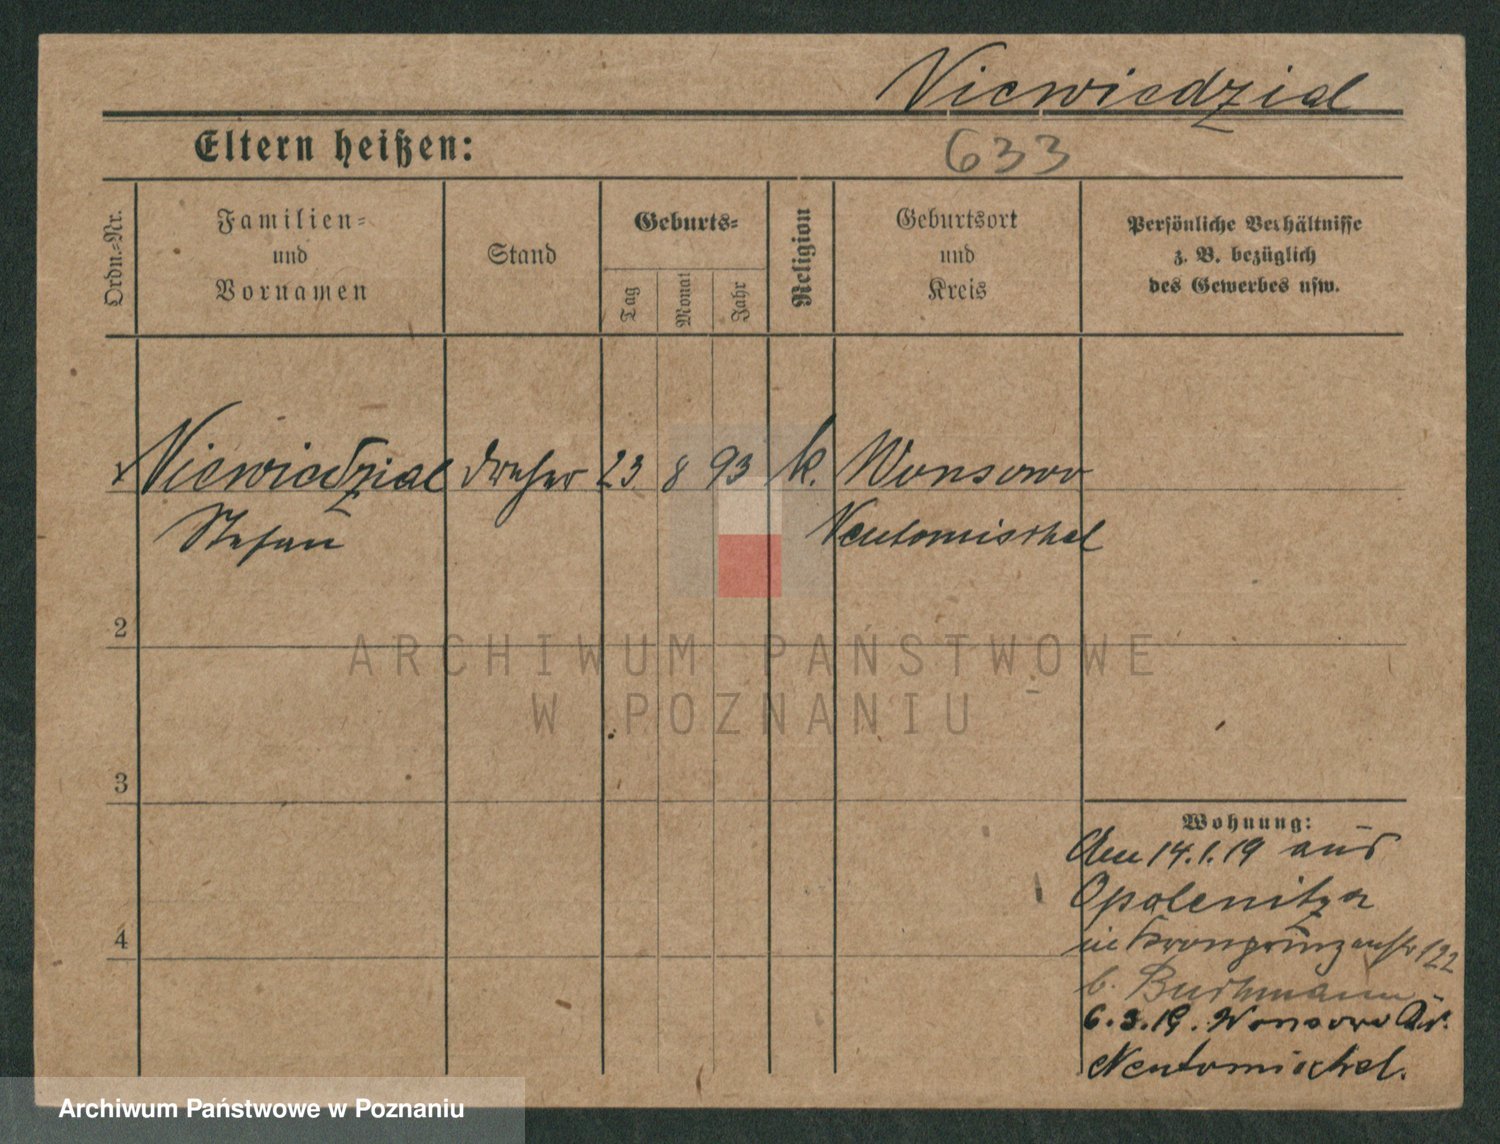 Niewiedzial
Eltern heißen:
633
Ordn.=Nr.
Familien=
und
Vornamen
Stand
Geburts=
Tag
Monat
Jahr
Religion
Geburtsort
und
Kreis
Persönliche Verhältnisse
z. B. bezüglich
des Gewerbes usw.
Niewiedzial Dreher 23 8 93 k. Wonsowo
Stefan Neutomischel
2
ARCHIWUM PAŃSTWOWE
W POZNANIU
3
Wohnung:
Am 14.1.19 aus
Opalenitza
in Kronprinzenstr 122
b. Buchmann
6.3.19. Wonsowo Kr.
Neutomischel.
4
Archiwum Państwowe w Poznaniu